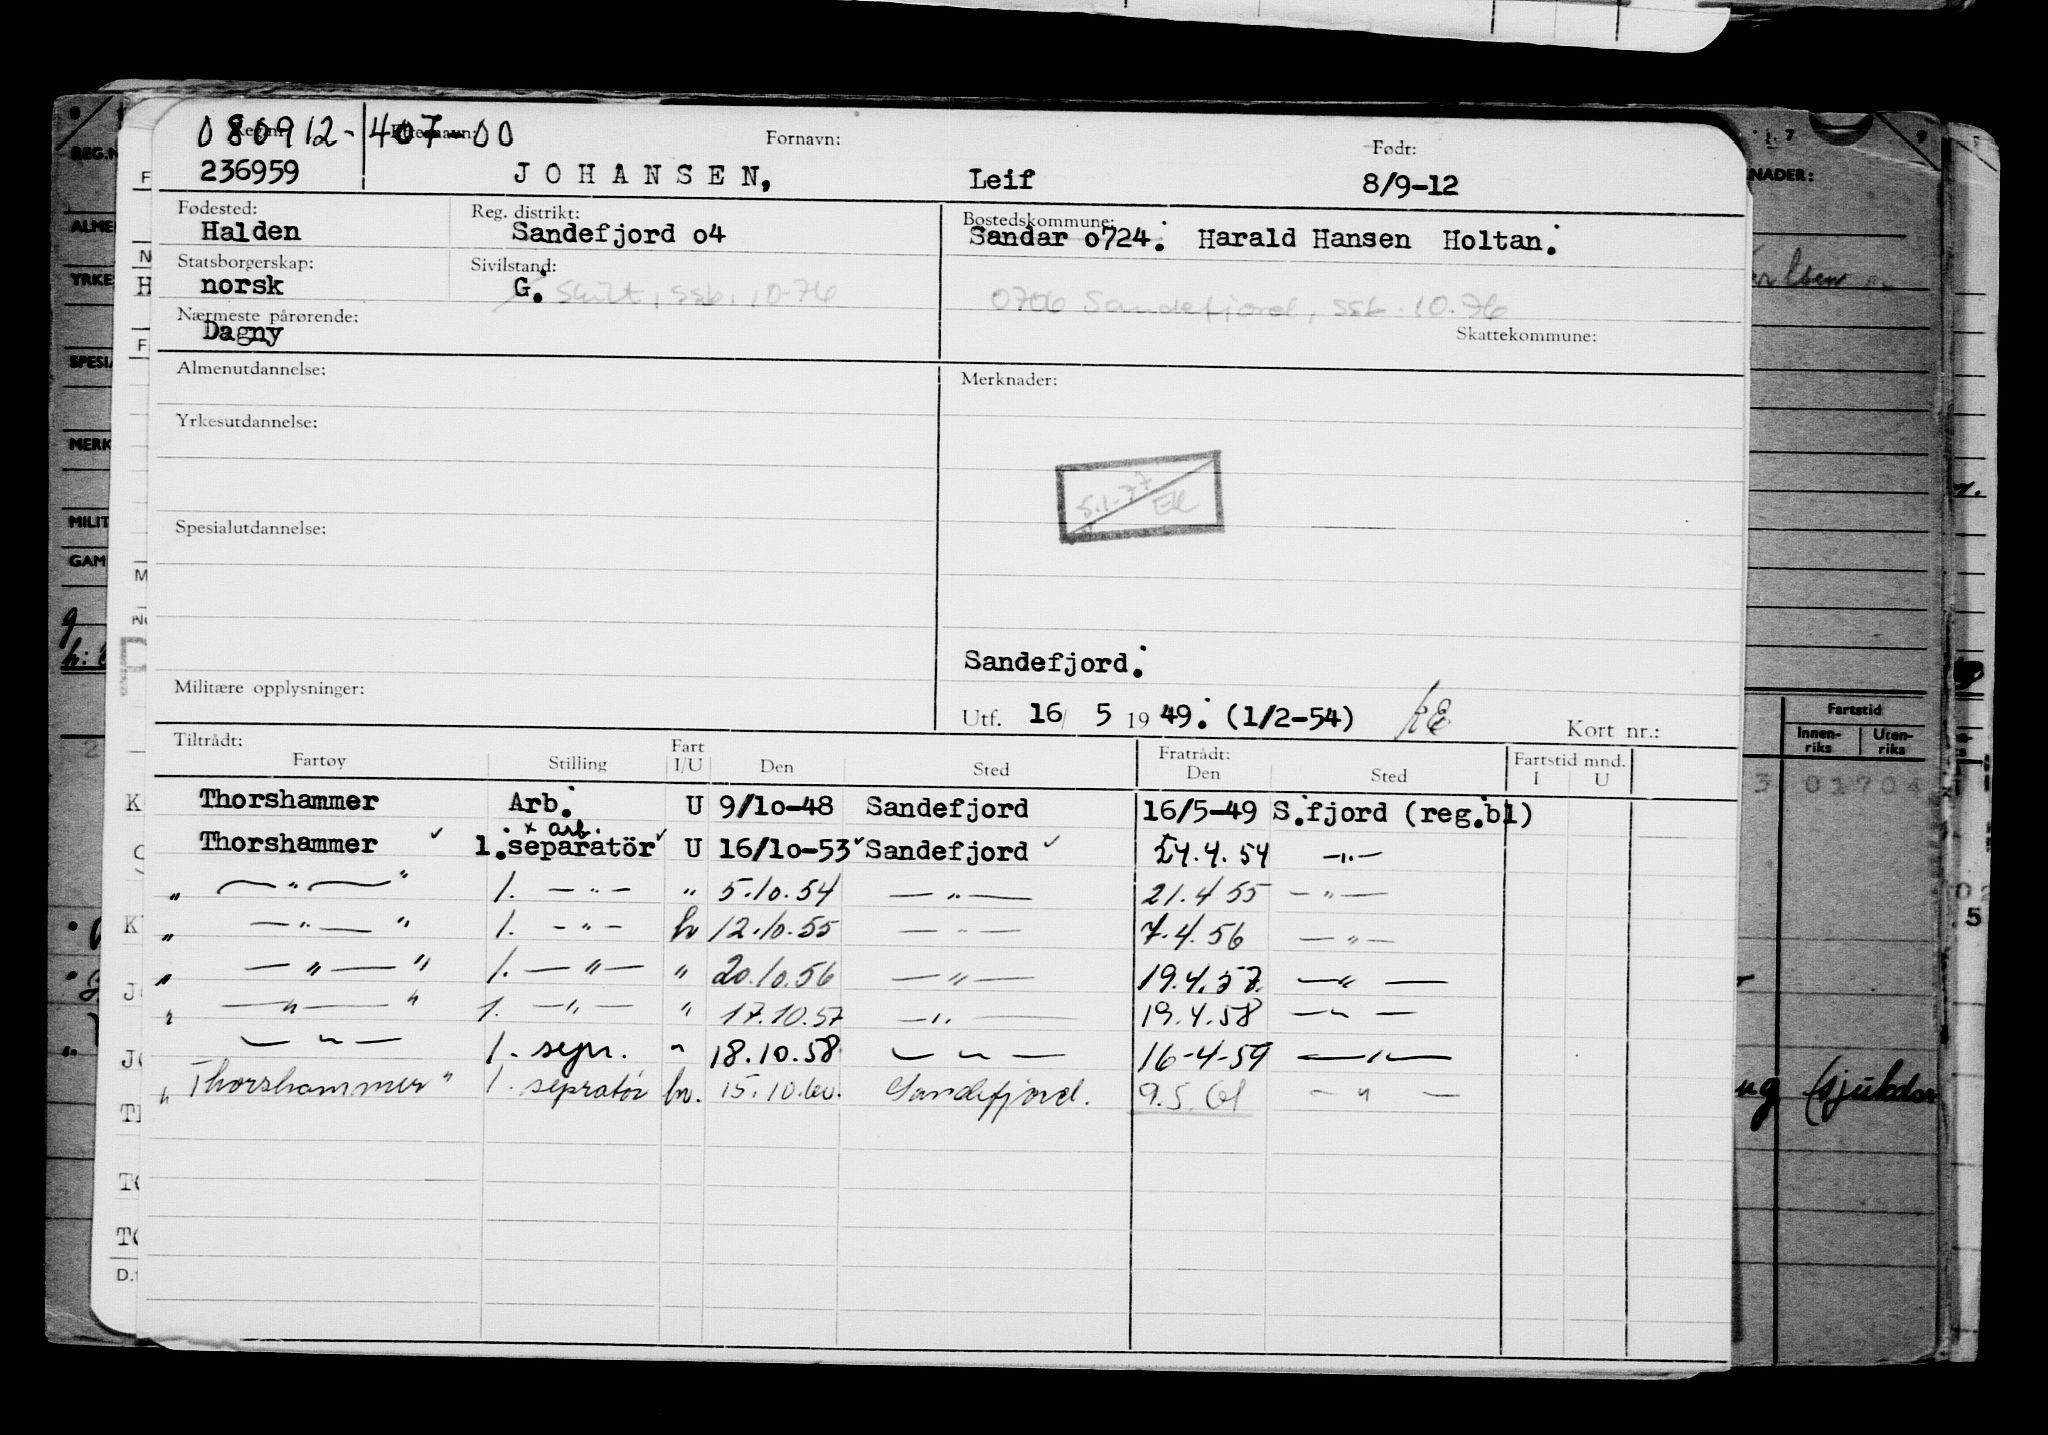 080912-407-00
Reg.nr. Etternavn: Fornavn: Født:
236959 JOHANSEN, Leif 8/9-12
Fødested: Reg. distrikt: Bostedskommune:
Halden Sandefjord o4 Sandar o724. Harald Hansen Holtan.
Statsborgerskap: Sivilstand:
norsk G. Skilt, ssb. 10-76 0706 Sandefjord, ssb. 10.76
Nærmeste pårørende: Skattekommune:
Dagny
Almenutdannelse: Merknader:
Yrkesutdannelse:
5.1-77 EK
Spesialutdannelse:
Sandefjord.
Militære opplysninger:
Utf. 16/ 5 1949. (1/2-54) Kort nr.:
Tiltrådt: Fratrådt: Fartstid mnd.
Fartøy Stilling Fart I/U Den Sted Den Sted I U
Thorshammer Arb. U 9/10-48 Sandefjord 16/5-49 S.fjord (reg.bl)
x arb.
Thorshammer ✓ 1.separatör ✓ U 16/10-53 ✓ Sandefjord ✓ 24.4.54 —"—
" — " — " 1. — " — " 5.10.54 — " — 21.4.55 — " —
" — " — " 1. — " — hv 12.10.55 — " — 7.4.56 — " —
" — " — " 1. — " — " 20.10.56 — " — 19.4.57. — " —
" — " — " 1. — " — " 17.10.57 — " — 19.4.58 — " —
— " — 1. sepr. " 18.10.58 — " — 16-4-59 — " —
" Thorshammer " 1. sepratör hv. 15.10.60. Sandefjord. 9.5.61 — " —
REG.N
ALME
YRKE
SPESI
MERK
MILIT
GAM
NADER:
Fartstid
Innen-riks Uten-riks
3 01704
ng (sjukdom